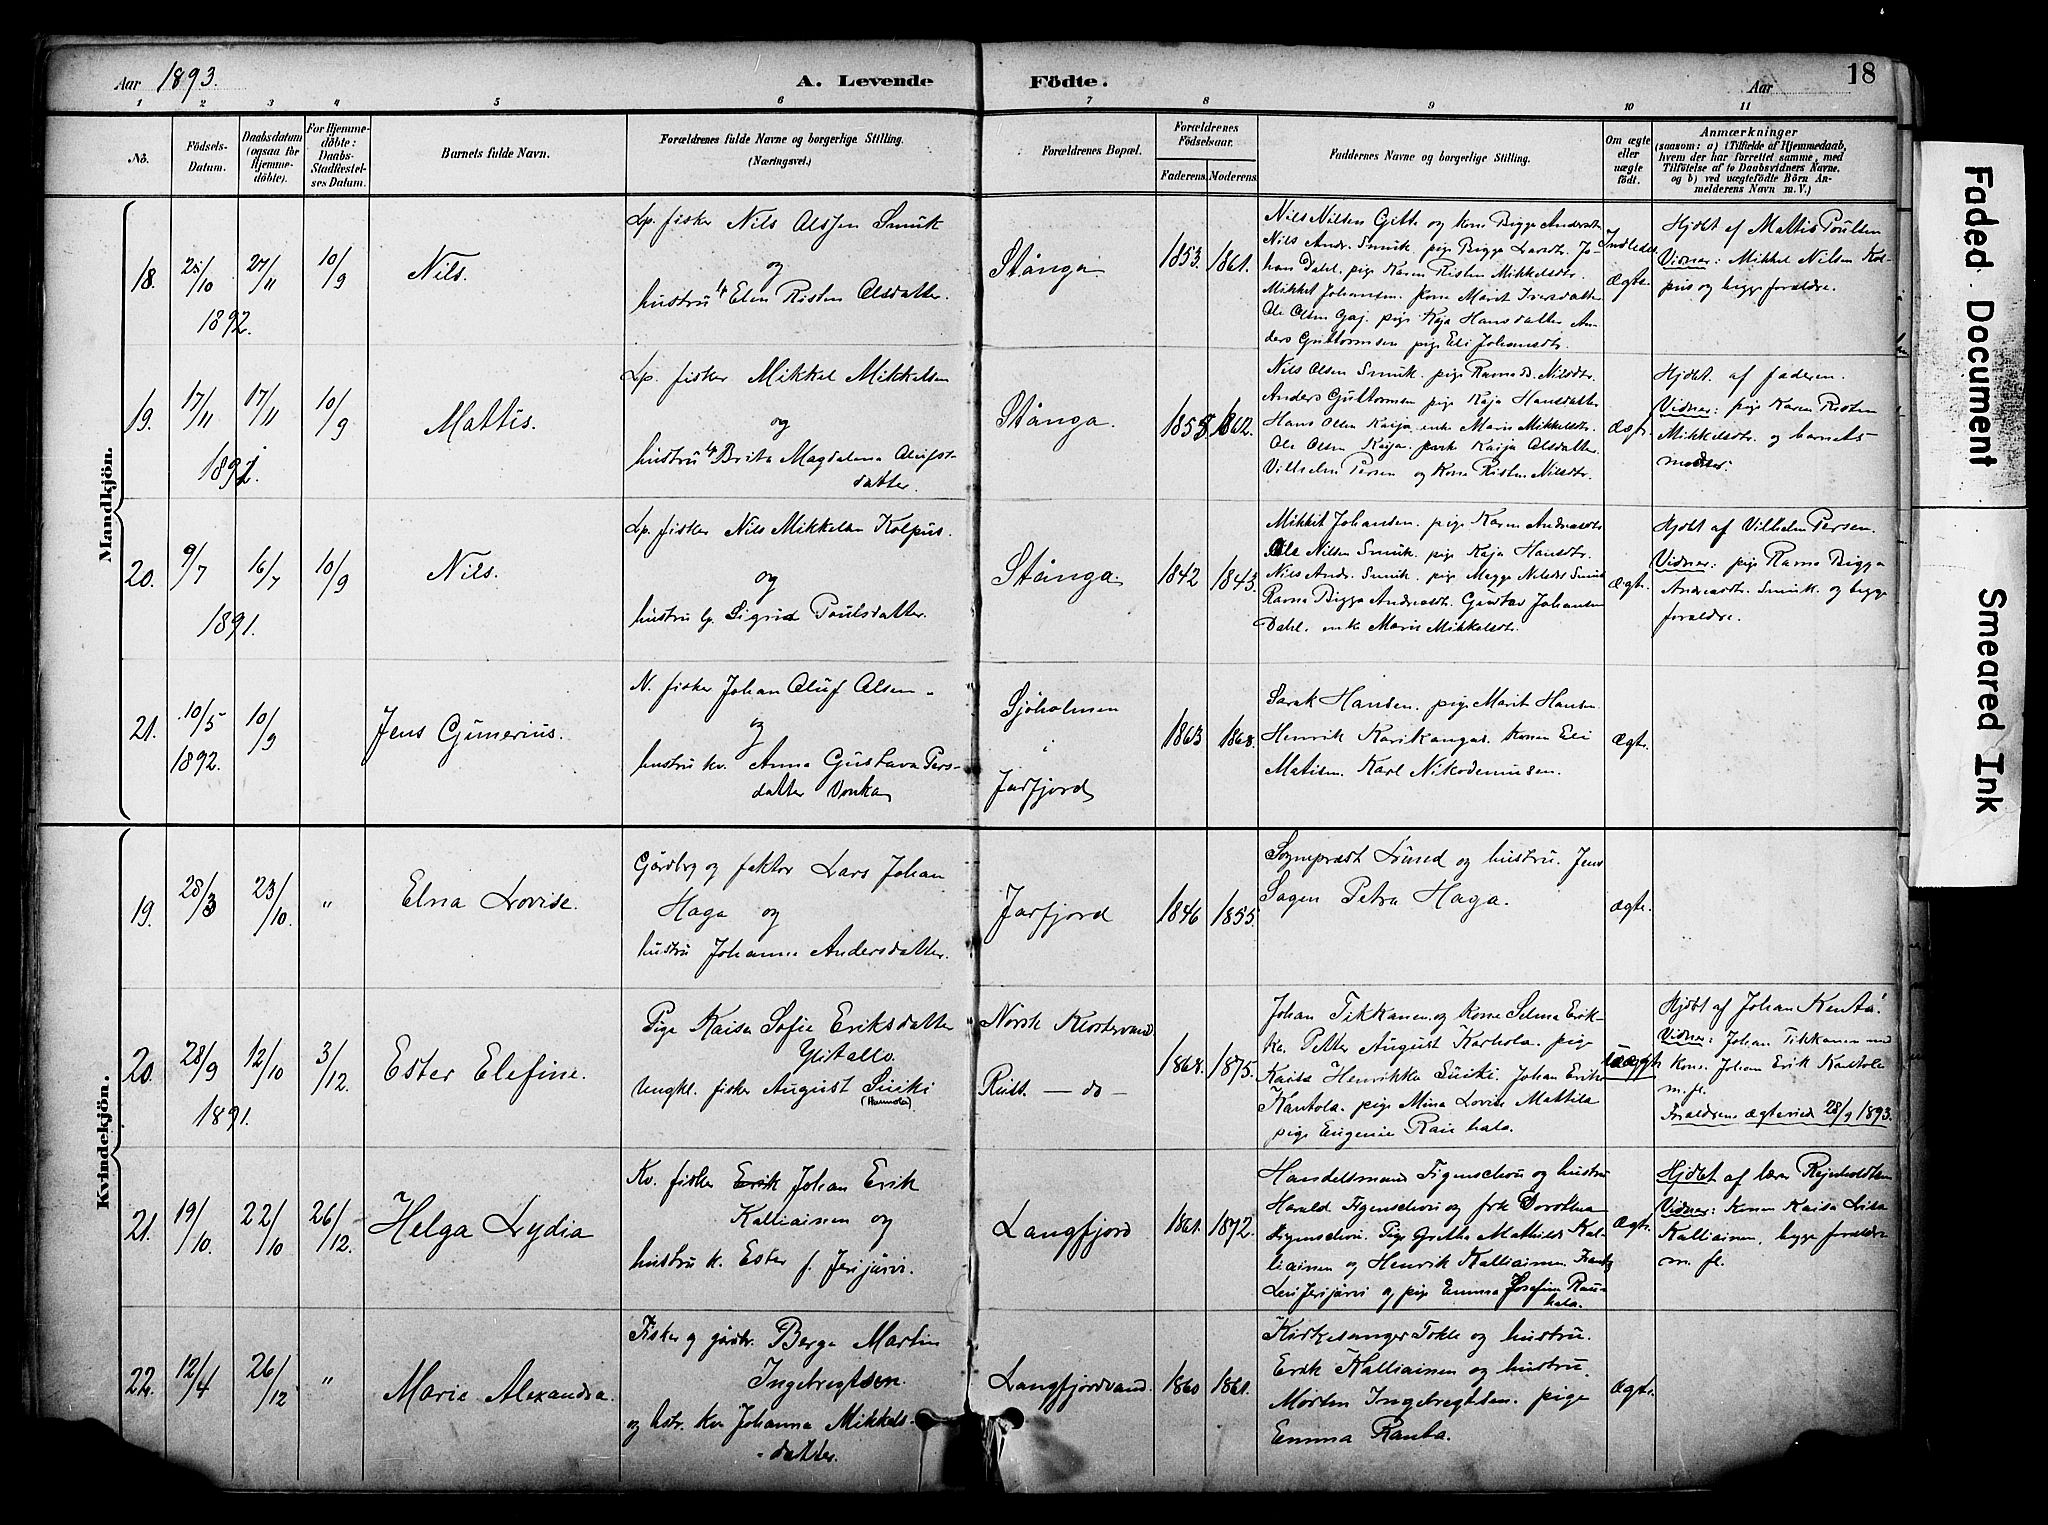 Aar 1893.
A. Levende Födte.
Aar
18
1 2 3 4 5 6 7 8 9 10 11
No.
Födsels-
Datum.
Daabsdatum
(ogsaa for
Hjemme-
döbte).
For Hjemme-
döbte:
Daabs-
Stadfæstel-
ses Datum.
Barnets fulde Navn.
Forældrenes fulde Navne og borgerlige Stilling.
(Næringsvei.)
Forældrenes Bopæl.
Forældrenes
Födselsaar.
Faderens. Moderens.
Faddernes Navne og borgerlige Stilling.
Om ægte
eller
uægte
födt.
Anmærkninger
(saasom: a) i Tilfælde af Hjemmedaab,
hvem der har forrettet samme, med
Tilföielse af to Daabsvidners Navne.
og b) ved uægtefödte Börn An-
melderens Navn m. V.)
Mandkjön.
18.
25/10
1892.
27/11
10/9
Nils.
Lp. fisker Nils Olsen Smuk
og
hustru lp Elen Risten Olsdatter.
Stånga
1853.
1861.
Nils Nilsen Gitte og kone Bigga Andersdtr
Nils Andr. Smuk pige Bigga Larsdtr. Jo-
han Dahl. pige Karen Risten Mikkelsdtr.
Mikkel Johansen. kone Marit Iversdatter
Ole Olsen Gaj. pige Kaja Hansdatter An-
ders Guttormsen pige Eli Johansdtr.
ægte.
Hjdøt af Mattis Poulsen
Vidner: Mikkel Nilsen Kol-
pus og begge forældre.
19.
17/11
17/11
10/9
Mattis.
Lp. fisker Mikkel Mikkelsen
og
hustru lp Brita Magdalena Olufs-
datter.
Stånga.
1862.
Nils Olsen Smuk. pige Ravna B. Nilsdtr.
Anders Guttormsen pige Kaja Hansdatter
Hans Olsen Kaija. enke Maris Mikkelsdtr.
Ole Olsen Kaija. Kaija Olsdatter.
Vilhelm Persen og Kone Risten Nilsdtr.
ægt.
Hjdøt. af faderen.
Vidner: pige Karen Risten
Mikkelsdtr. og barnets
moder.
20.
9/7
1891.
16/7
10/9
Nils.
Lp. fisker Nils Mikkelsen Kolpus.
og
hustru lp. Sigrid Poulsdatter.
Stånga.
1842
1843.
Mikkit Johansen. pige Karen Andreasdtr
Ole Nilsen Smuk. pige Kaja Hansdtr.
Nils Andr. Smuk. pige Magga Nilsdtr Smuk
Ravna Bigga Andreasdtr. Gustav Johansen
Dahl. enke Maris Mikkelsdtr.
ægte.
Hjdøt af Vilhelm Persen.
Vidner: pige Ravna Bigga
Andreasdtr. Smuk. og begge
forældre.
21.
10/5
1892.
10/9
Jens Gunerius.
N. fisker Johan Oluf Olsen
og
hustru kv. Anna Gustava Pers-
datter Vonka
Sjöholmen
i
Jarfjord
1863
1868.
Sarak Hansen. pige Marit Hansen
Henrik Karikangas. konen Eli
Matisen. Karl Nikodemusen.
ægte.
Kvindekjön.
19.
28/3
23/10.
"
Elna Lovise.
Gårdbrg og faktor Lars Johan
Haga og
hustru Johanna Andersdatter.
Jarfjord
1846
1855.
Sognepræst Lund og hustru. Jens
Sagen Petra Haga.
ægte.
20.
28/9
1891.
12/10
3/12.
Ester Elefine.
Pige Kaisa Sofie Eriksdatter
Ylitallo.
Ungkl. fisker August Suiki
(Hannola)
Norsk Klostervand
Russ. — do —
1868.
1875.
Johan Tikkanen og kone Selma Erik-
ka. Petter August Karhola. pige
Kaisa Henrikka Suiki. Johan Erik
Kantola. pige Mina Lovise Mattila
pige Eugenie Rauhala.
uægt.
Hjdøt af Johan Kenta.
Vidner: Johan Tikkanen med
kone. Johan Erik Kantola
m. fl.
Forældrene ægteviet 28/9 1893.
21.
19/10.
22/10
26/12.
Helga Lydia
Kv. fisker Erik Johan Erik
Kalliainen og
hustru k. Ester f. Jerijärvi.
Langfjord
1861.
1872.
Handelsmand Figenschou og hustru
Harald Figenschou og frk Dorothea
Figenschou. Pige Gretha Mathilde Kal-
liainen og Henrik Kalliainen.
Levi Jerijärvi og pige Emma Josefine Rau-
hala.
ægte.
Hjdøt af lærer Rejnholdtsen
Vidner: Konen Kaisa Lisa
Kalliainen, begge forældre
m. fl.
22.
12/4
26/12
"
Marie Alexandra.
Fisker og gårdbr. Berge Martin
Ingebregtsen.
og hstr. kv. Johanna Mikkels-
datter.
Langfjordvand.
1860
1861.
Kirkesanger Tokle og hustru.
Erik Kalliainen og hustru.
Morten Ingebregtsen. pige
Emma Ranta.
ægte.
Faded Document
Smeared Ink